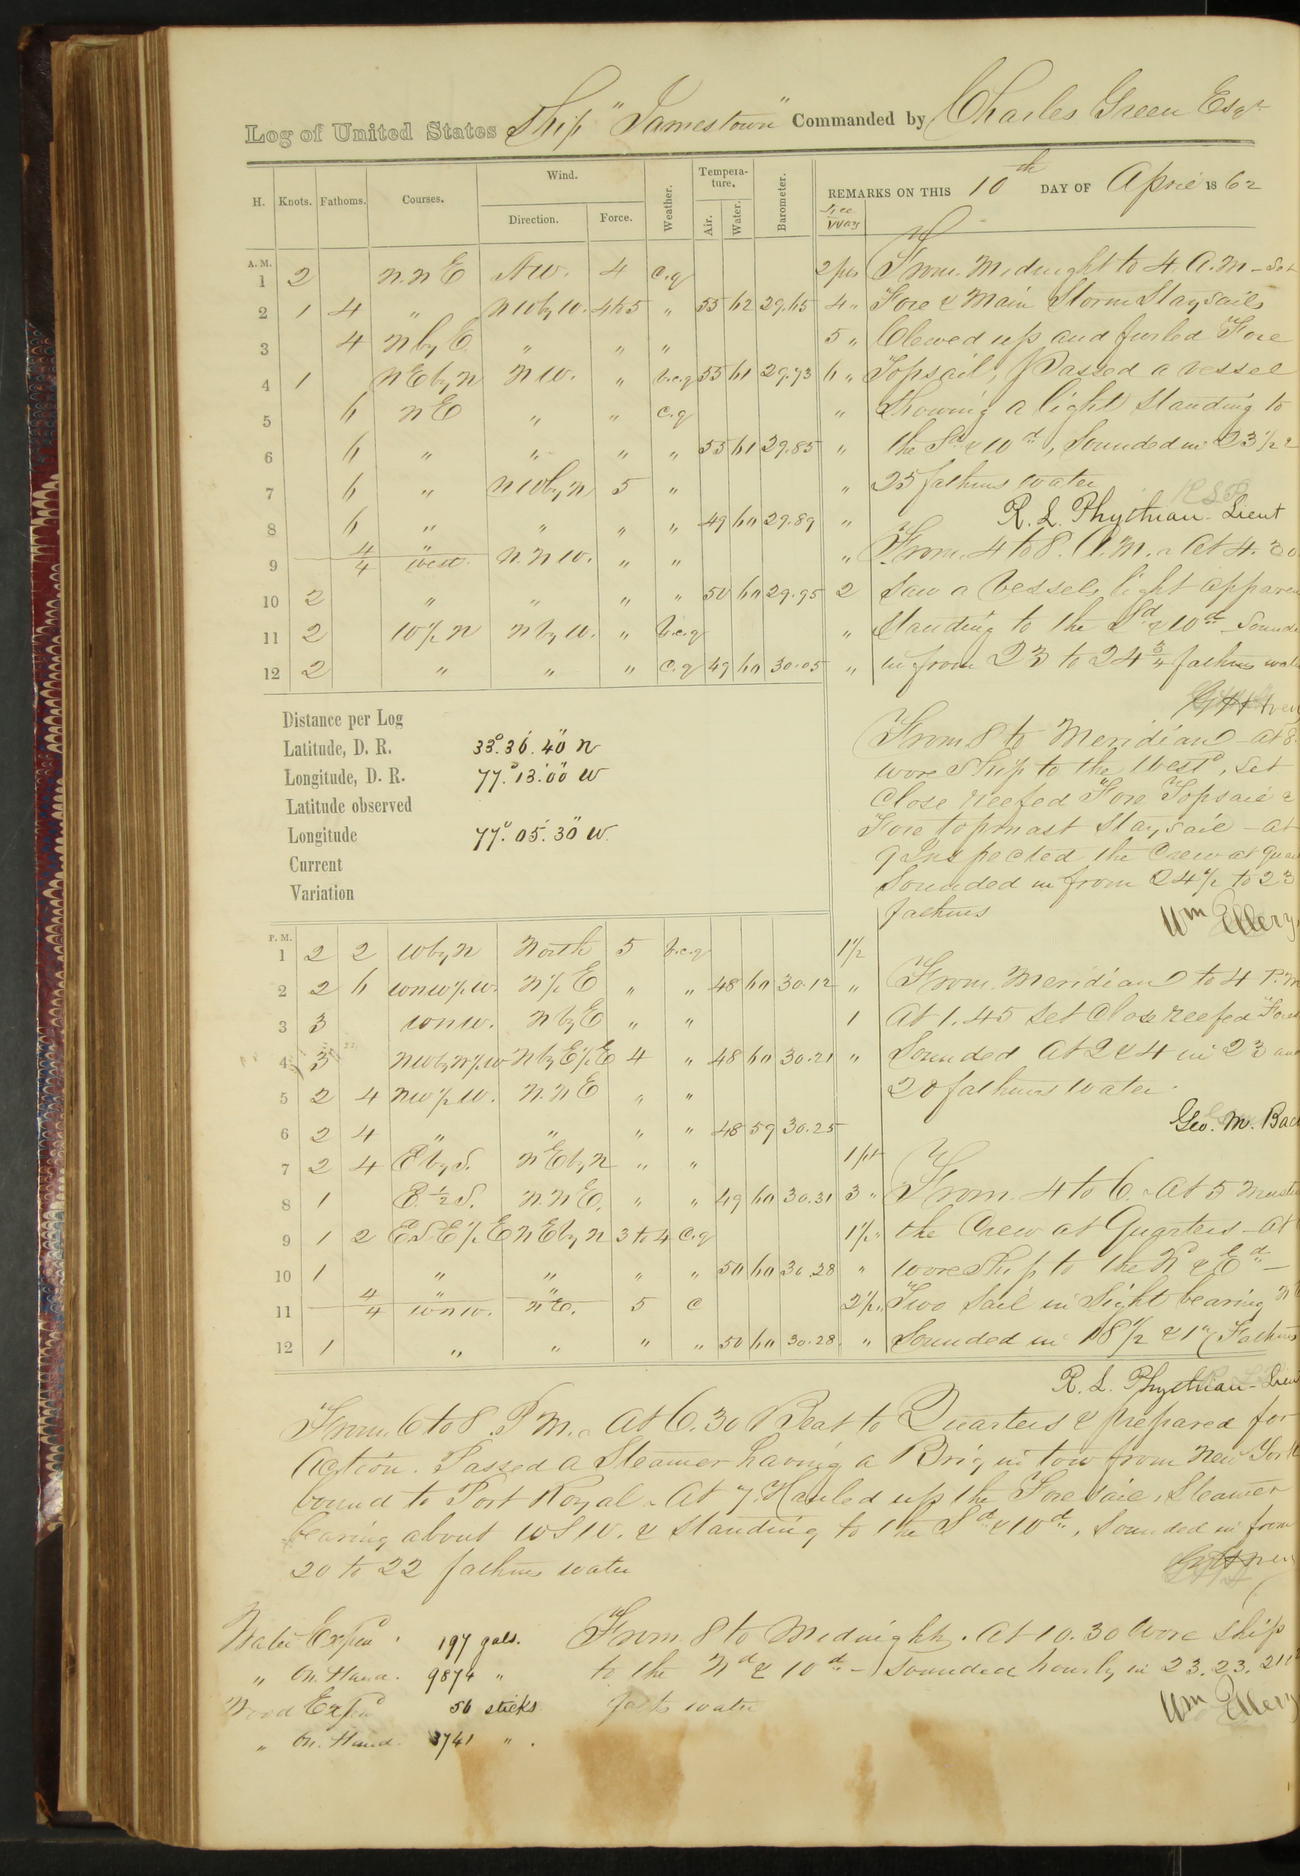 Log of United States Ship "Jamestown" Commanded by Charles Green Esqr
REMARKS ON THIS 10th DAY OF April 1862
H. Knots. Fathoms. Courses. Wind. Direction. Force. Weather. Temperature. Air. Water. Barometer. Lee Way
A. M.
1 2 N.N.E N.W. 4 c.q 2 pts
2 1 4 " NW by W. 4 to 5 " 55 62 29.65 4 "
3 4 N by E " " " 5 "
4 1 NE by N NW. " b.c.q 55 61 29.73 6 "
5 6 NE " " c.q "
6 6 " " " " 55 61 29.85 "
7 6 " NW by N 5 " "
8 6 " " " " 49 60 29.89 "
9 4/4 "/West. N.N.W. " " "
10 2 " " " " 50 60 29.95 2
11 2 W 1/2 N N by W. " b.c.q "
12 2 " " " c.q 49 60 30.05 "
From Midnight to 4 A.M - Set
Fore & Main Storm Staysails
Clewed up and furled Fore
Topsail, Passed a vessel
Showing a light standing to
the Sd & Wd, Sounded in 23 1/2 &
25 fathms water
R. L. Phythian Lieut
From 4 to 8 A.M. At 4.30
saw a vessels light
standing to the Sd & Wd
in from 23 to 24 3/4 fathms
Distance per Log
Latitude, D. R. 33°.36'.40" N
Longitude, D. R. 77°.13'.00" W
Latitude observed
Longitude 77°.05'.30" W.
Current
Variation
From 8 to Meridian - at 8
wore Ship to the West, Set
Close reefed Fore Topsail &
Fore topmast Staysail - at
9 Inspected the Crew at
Sounded in from 24 1/2 to 23
fathms
Wm Ellery
P. M.
1 2 2 W by N North 5 b.c.q 1 1/2
2 2 6 WNW 1/2 W. N 1/2 E " " 48 60 30.12 "
3 3 WNW. N by E " " 1
4 3 NW by N 1/2 W N by E 1/2 E 4 " 48 60 30.21 "
5 2 4 NW 1/2 W. N.NE " "
6 2 4 " " " " 48 59 30.25
7 2 4 E by S. NE by N " " 1 pt
8 1 E 1/2 S. N.NE. " " 49 60 30.31 3 "
9 1 2 ESE 1/2 E NE by N 3 to 4 c.q 1 1/2 "
10 1 " " " " 50 60 30.28 "
11 4/4 "/WNW. "/NE. 5 c 2 1/2 "
12 1 " " " " 50 60 30.28 "
From Meridian to 4 P.M
At 1.45 set Close reefed
Sounded At 2 & 4 in 23 and
20 fathms water.
Geo. M.
From 4 to 6. At 5
the Crew at Quarters - at
wore Ship to the N & Ed -
Two sail in sight bearing
Sounded in 18 1/2 & 17 Fathms
R. L. Phythian Lieut
From 6 to 8 P.M. At 6.30 Beat to Quarters & prepared for
Action. Passed a Steamer having a Brig in tow from New York
bound to Port Royal. At 7. Hauled up the Foresail, Steamer
bearing about WSW. & standing to the Sd & Wd, Sounded in from
20 to 22 fathms water
Water Expend. 197 gals.
" On Hand. 9874 "
Wood Expend 56 sticks
" On Hand. 3741 ".
From 8 to Midnight. At 10.30 Wore Ship
to the Nd & Wd - Sounded hourly in 23. 23.
water
Wm Ellery